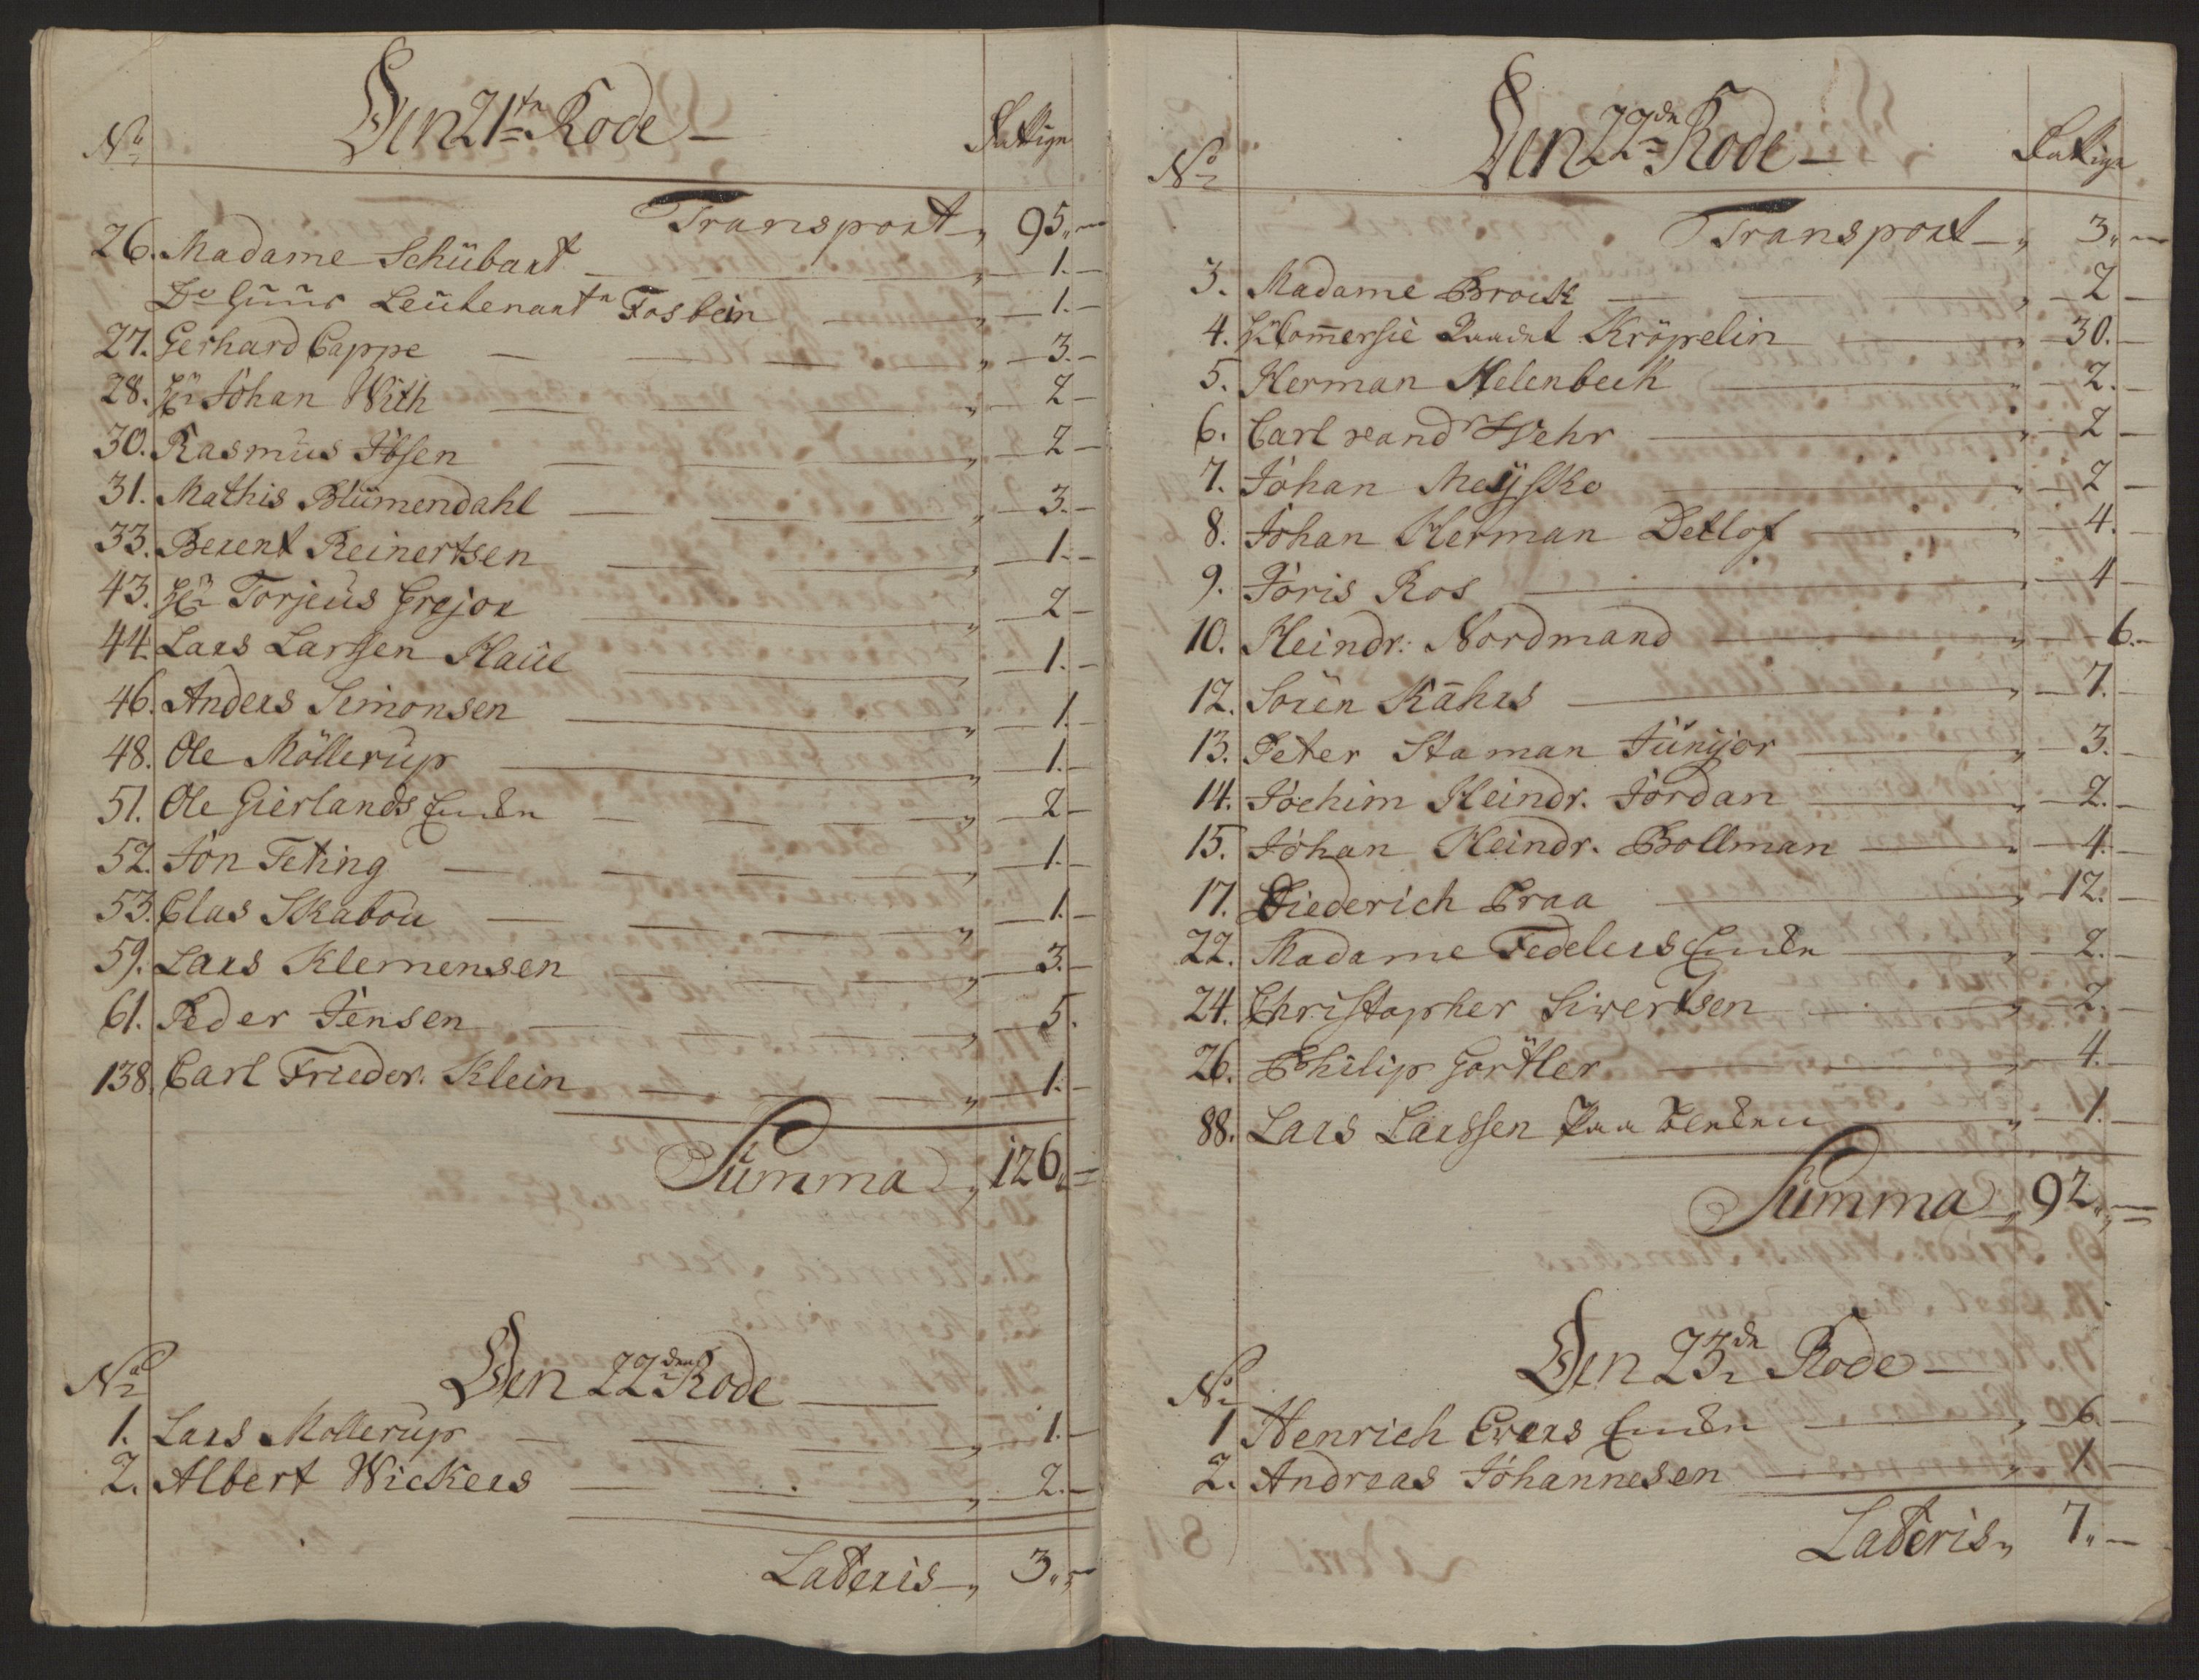 Den 21te Rode
No
Fattige
Transport 95
26. Madame Schübart 1.
Do Huus Leütenant Fosbein 1.
27. Gerhard Cappe 3.
28. Hr Johan With 2
30. Rasmus Ibsen 2
31. Mathis Blümendahl 3.
33. Berent Reinertsen 1.
43. Hr Torjeüs Grejor 2
44. Lars Larssen Haüe 1.
46. Anders Simonsen 1.
48. Ole Möllerüp 1.
51. Ole Gierlands Encken 2
52. Jon Feting 1.
53. Clas Skabou 1.
59. Lars Klemensen 3.
61. Peder Jensen 5.
138. Carl Frieder. Klein 1.
Summa 126
No
Den 22den Rode
1. Lars Möllerup 1.
2. Albert Wickers 2.
Lateris 3
Den 22de Rode
No
Fattige
Transport 3
3. Madame Brock 2
4. Hr Commersie Raadt Kröpelin 30.
5. Herman Helenbech 2.
6. Carl vand Wehr 2
7. Johan Meÿske 2
8. Johan Herman Detlof 4.
9. Joris Ros 4
10. Heindr: Nordmand 6.
12. Sören Kahrs 7.
13. Peter Staman Jünijor 3.
14. Jochim Heindr. Jordan 2.
15. Johan Heindr. Bollman 4.
17. Diederich Praa 12.
22. Madame Fedelers Encken 2.
24. Christopher Siwertsen 2.
26. Philip Gortler 4.
88. Lars Larssen Paa 1.
Summa 92
Den 23de Rode
No
1 Henrich Evers Encken 6
2. Andreas Johannesen 1
Lateris 7